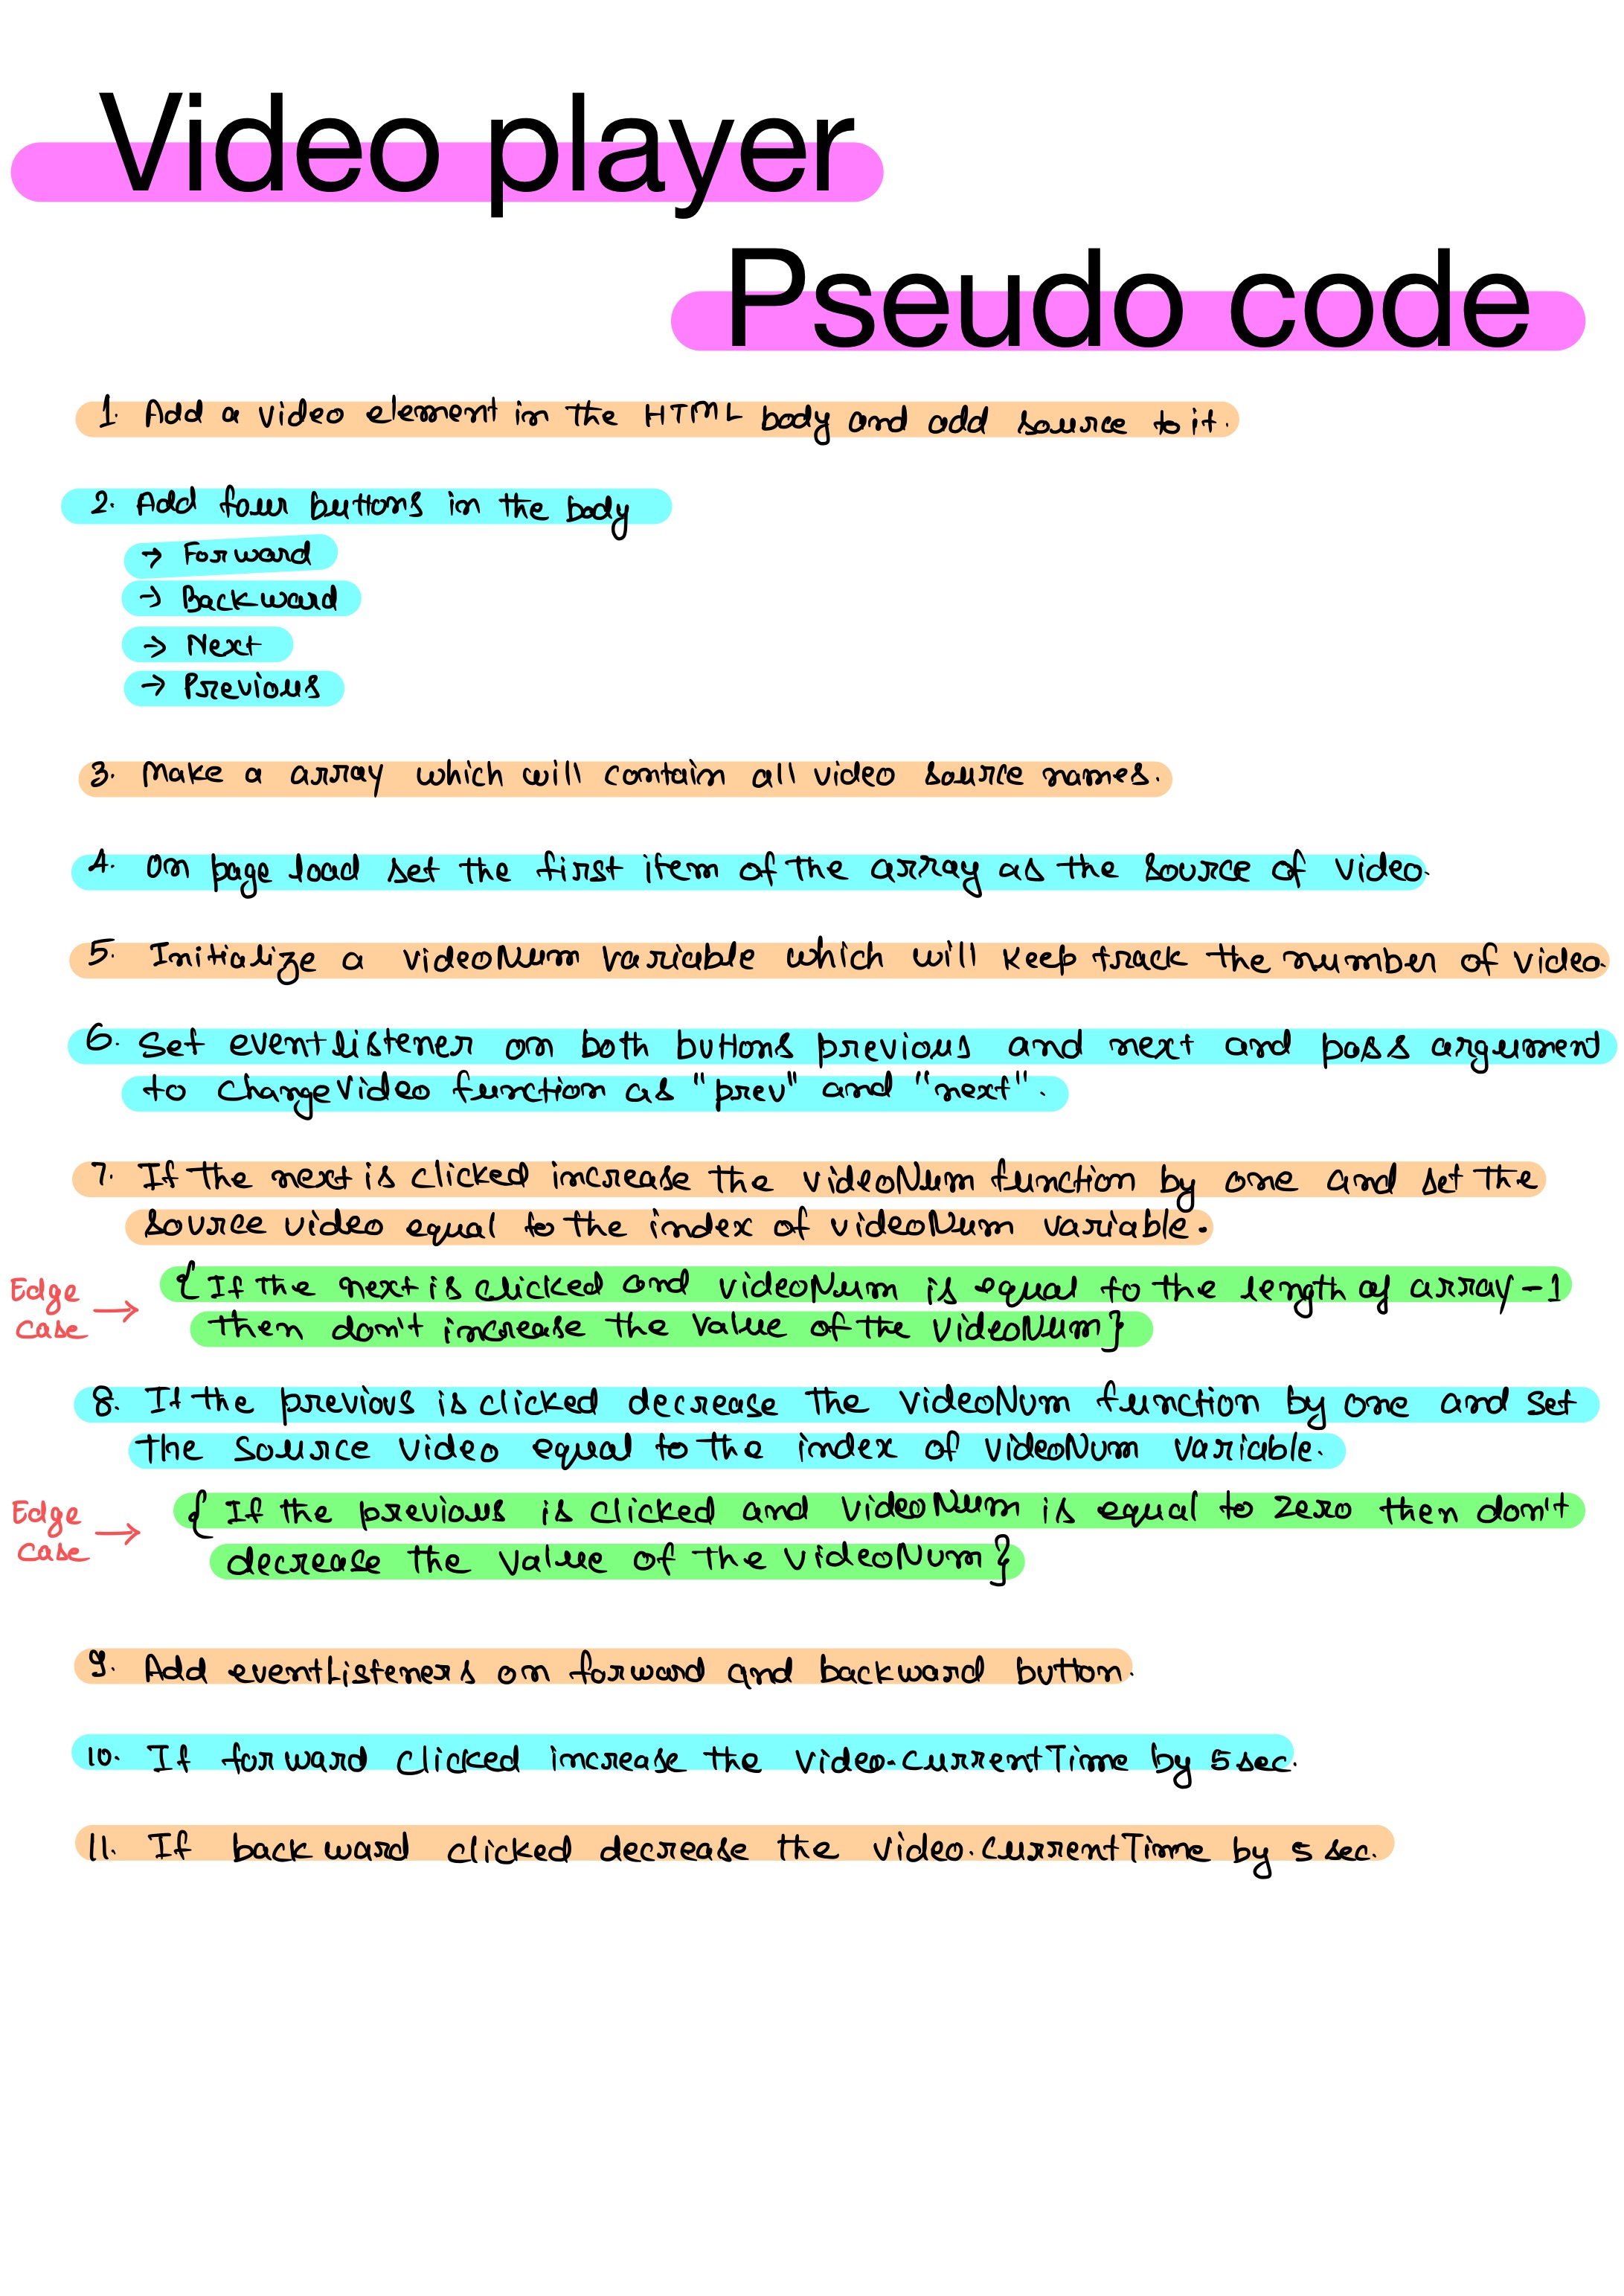 Video player
Pseudo code
1. Add a video element in the HTML body and add source to it.
2. Add four buttons in the body
→ Forward
→ Backward
→ Next
→ Previous
3. Make a array which will contain all video source names.
4. On page load set the first item of the array as the source of video.
5. Initialize a videoNum variable which will keep track the number of video.
6. Set eventlistener on both buttons previous and next and pass argument
to changeVideo function as "prev" and "next".
7. If the next is clicked increase the videoNum function by one and set the
source video equal to the index of videoNum variable.
Edge case → { If the next is clicked and videoNum is equal to the length of array-1
then don't increase the value of the videoNum}
8. If the previous is clicked decrease the videoNum function by one and set
the source video equal to the index of videoNum variable.
Edge case → { If the previous is clicked and videoNum is equal to zero then don't
decrease the value of the videoNum}
9. Add eventListeners on forward and backward button.
10. If forward clicked increase the video.currentTime by 5 sec.
11. If backward clicked decrease the video.currentTime by 5 sec.